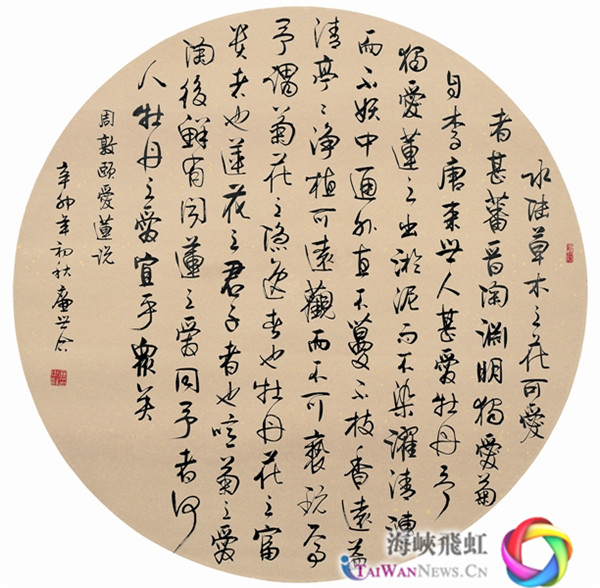 水陸草木之花可愛
者甚蕃晋陶渊明獨愛菊
自李唐来世人甚愛牡丹予
獨愛蓮之出淤泥而不染濯清漣
而不妖中通外直不蔓不枝香遠益
清亭々净植可遠觀而不可褻玩焉
予謂菊花之隐逸者也牡丹花之富
贵者也蓮花之君子者也噫菊之愛
陶後鮮有闻蓮之愛同予者何
人牡丹之愛宜乎眾矣
周敦頤愛蓮说
辛卯年初秋
海峽飛虹
TAIWANNEWS.CN